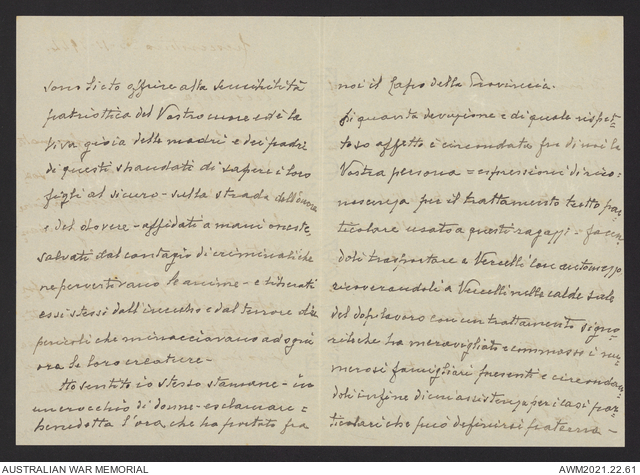 sono lieto offrire alla sensibilità
patriottica del Vostro cuore ed è la
viva gioia delle madri e dei padri
di questi sbandati di sapere i loro
figli al sicuro - sulla strada dell'onore
e del dovere - affidati a mani oneste,
salvati dal contagio di criminali che
ne pervertivano le anime - e liberati
essi stessi dall'incubo e dal terrore dei
pericoli che minacciavano ad ogni
ora le loro creature -
Ho sentito io stesso stamane - in
un crocchio di donne - esclamare =
benedetta l'ora che ha portato fra
noi il Capo della Provincia.
Di quanta devozione e di quale rispet-
toso affetto è circondata fra di noi la
Vostra persona = espressioni di rico-
noscenza per il trattamento tutto par-
ticolare usato a questi ragazzi = facen-
doli trasportare a Vercelli con automezzo
ricoverandoli a Vercelli nelle calde sale
del dopolavoro con un trattamento signo-
rile che ha meravigliato e commosso i nu-
merosi famigliari presenti e circondan-
doli infine di un assistenza per i casi par-
ticolari che può definirsi fraterna -
AUSTRALIAN WAR MEMORIAL
AWM2021.22.61